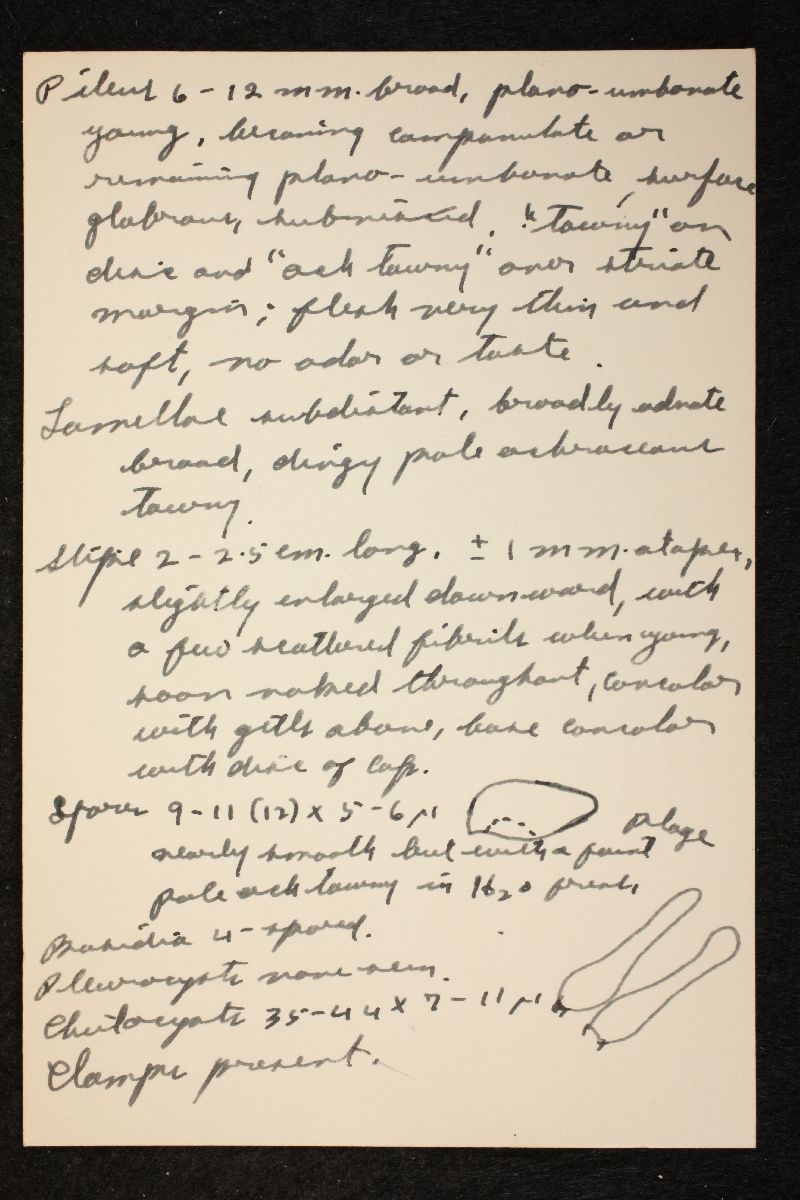 Pileus 6-12 mm. broad, plano-umbonate
young, becoming campanulate or
remaining plano-umbonate, surface
glabrous, subviscid, "tawny" on
disc and "och tawny" over striate
margin; flesh very thin and
soft, no odor or taste.
Lamellae subdistant, broadly adnate
broad, dingy pale ochraceous
tawny.
Stipe 2-2.5 cm. long, ± 1 mm. at apex,
slightly enlarged downward, with
a few scattered fibrils when young,
soon naked throughout, concolor
with gills above, base concolor
with disc of cap.
Spores 9-11 (12) x 5-6 µ
plage
nearly smooth but with a faint
pale och tawny in H2O fresh,
Basidia 4-spored.
Pleurocysts none seen.
Cheilocysts 35-44 x 7-11 µ
Clamps present.